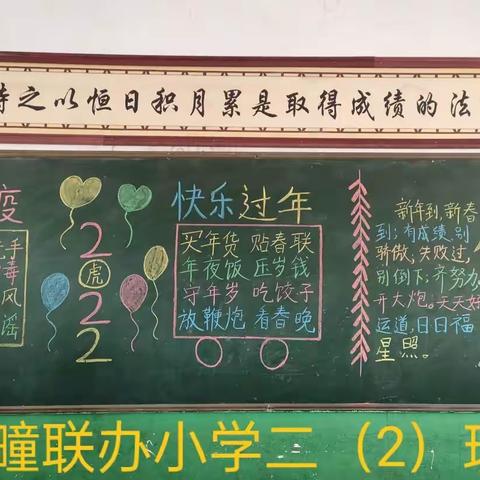 持之以恒日积月累是取得成绩的法
疫
手
毒
风
谣
2
虎
2
2
快乐过年
买年货 贴春联
年夜饭 压岁钱
守年岁 吃饺子
放鞭炮 看春晚
新年到,新春
到;有成绩,别
骄傲,失败过,
别倒下;齐努力,
开大炮。天天好
运道,日日福
星照。
疃联办小学二(2)班